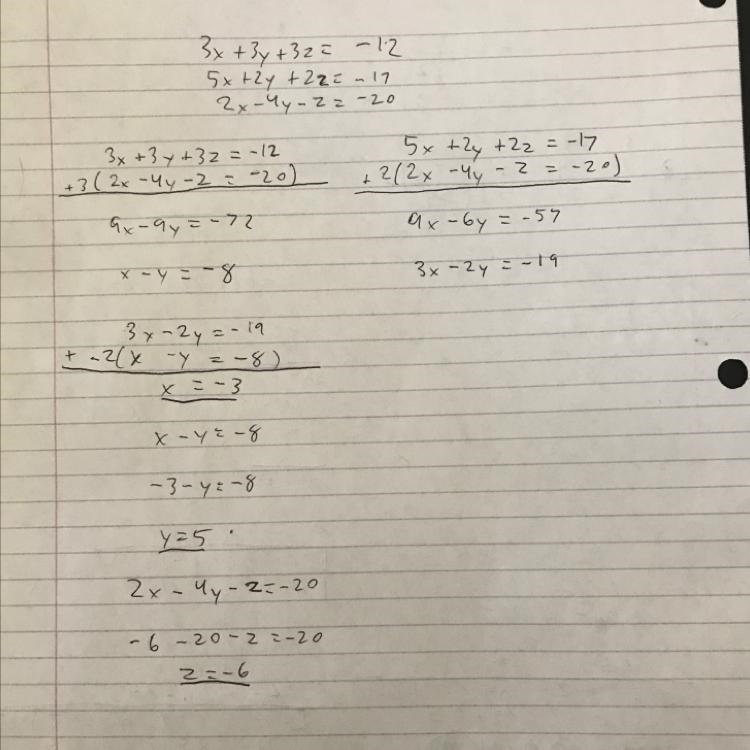 3x + 3y + 3z = -12
5x + 2y + 2z = -17
2x - 4y - z = -20
3x + 3y + 3z = -12
+3(2x - 4y - z = -20)
9x - 9y = -72
x - y = -8
5x + 2y + 2z = -17
+2(2x - 4y - z = -20)
9x - 6y = -57
3x - 2y = -19
3x - 2y = -19
+ -2(x - y = -8)
x = -3
x - y = -8
-3 - y = -8
y = 5
2x - 4y - z = -20
-6 - 20 - z = -20
z = -6